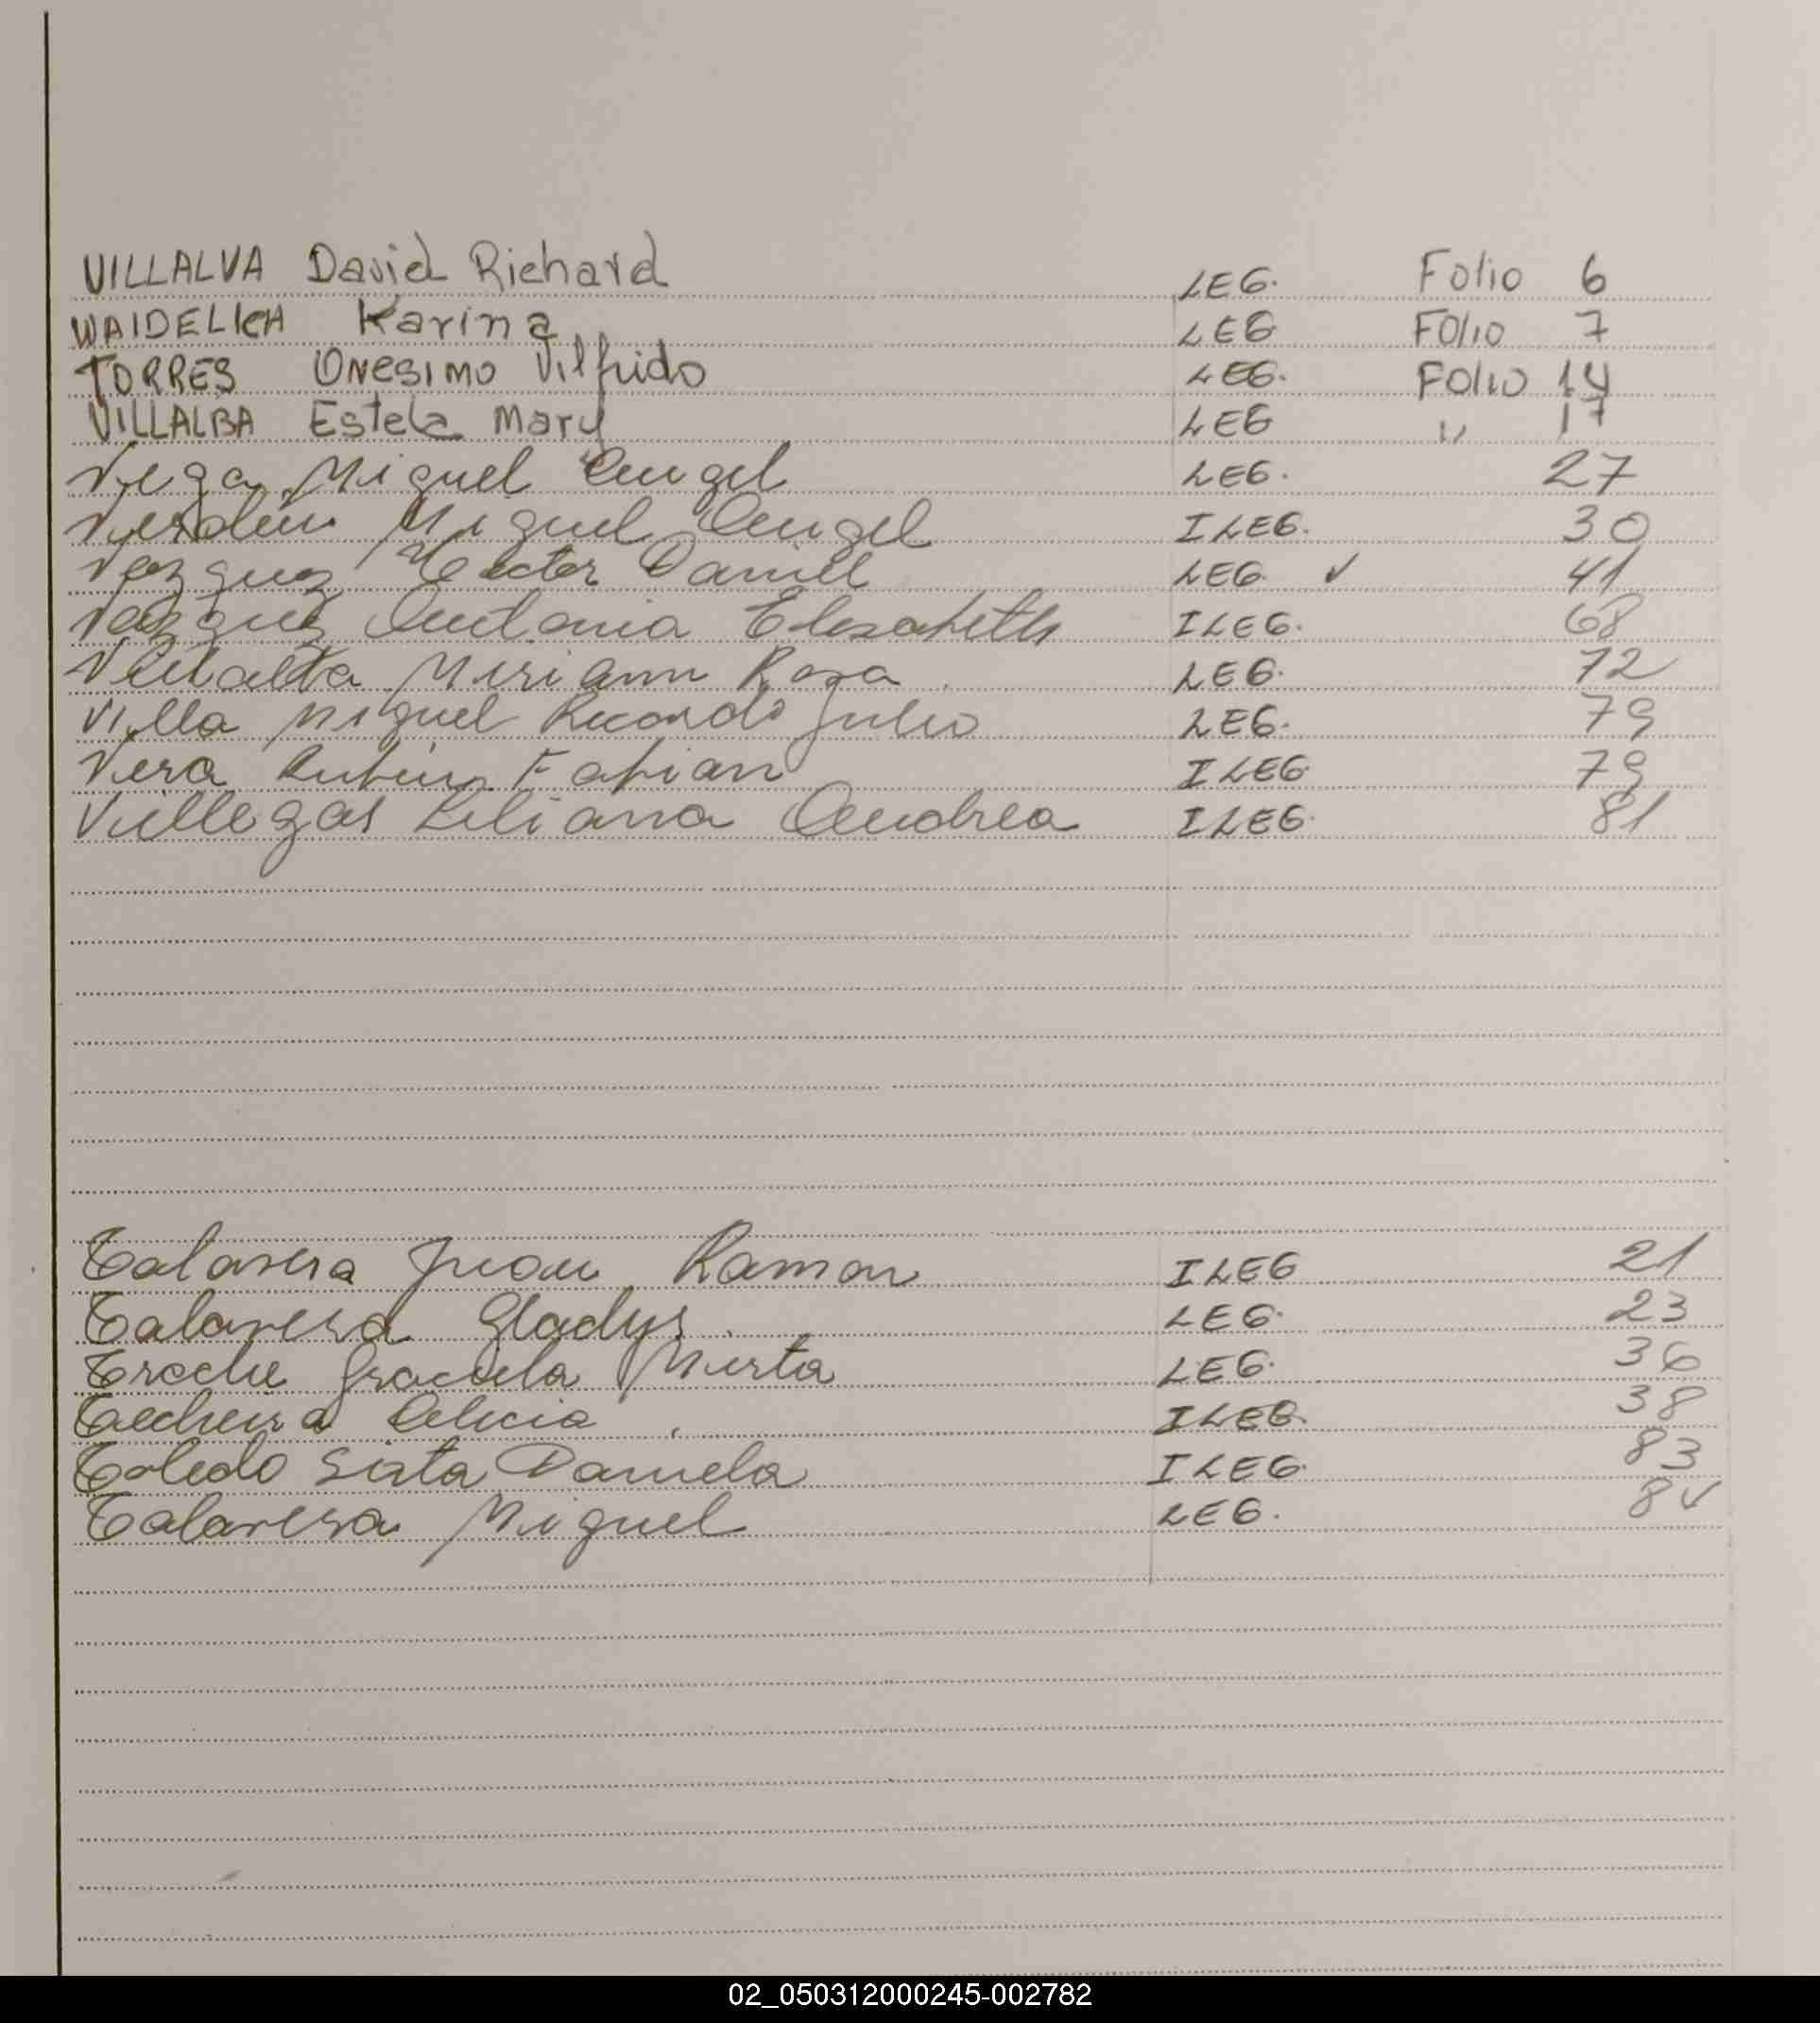 VILLALVA David Richard LEG. Folio 6
WAIDELICH Karina LEG Folio 7
TORRES ONESIMO Vilfrido LEG. Folio 14
VILLALBA Estela Mary LEG " 17
Vega Miguel Angel LEG. 27
Verdun Miguel Angel ILEG. 30
Vazquez Hector Daniel LEG. ✓ 41
Vazquez Antonia Elisabeth ILEG. 68
Villalta Miriam Rosa LEG. 72
Villa Miguel Ricardo Julio LEG. 79
Vera Ruben Fabian ILEG. 79
Villegas Liliana Andrea ILEG. 81
Talavera Juan Ramon ILEG 21
Talavera Gladys LEG. 23
Troche Graciela Mirta LEG. 36
Alicia ILEG. 38
Toledo Daniela ILEG. 83
Talavera Miguel LEG.
02_050312000245-002782